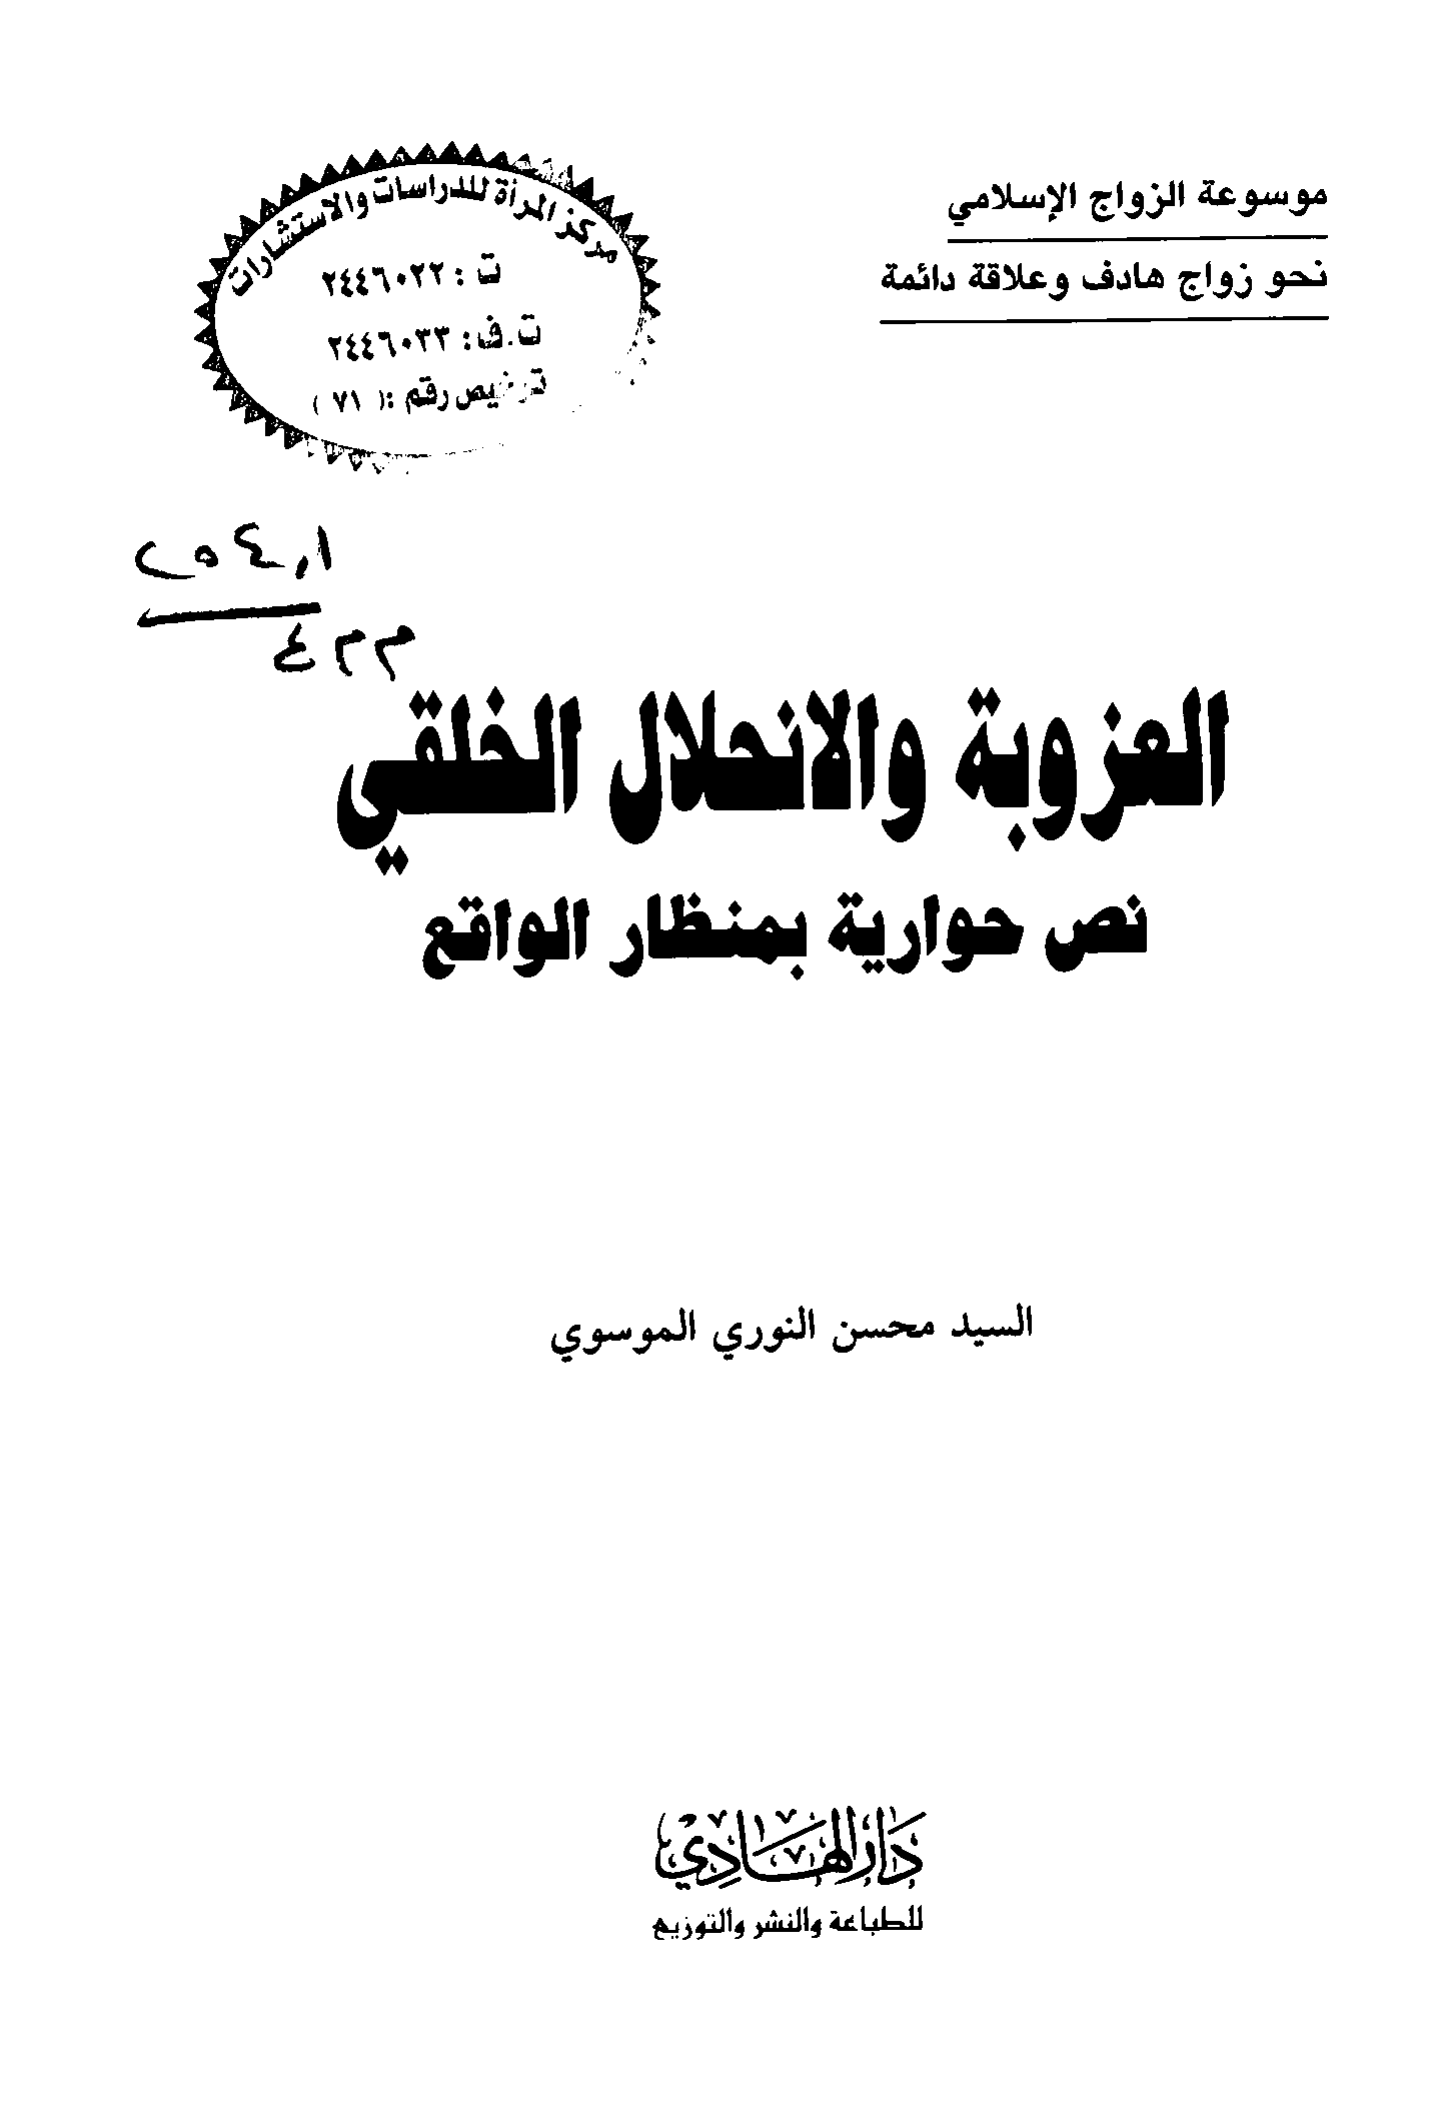 موسوعة الزواج الإسلامي
نحو زواج هادف وعلاقة دائمة
مركز المرأة للدراسات والاستشارات
ت : ٢٤٤٦٠٢٢
ت.ف: ٢٤٤٦٠٣٣
ترخيص رقم :( ٧١ )
٢٥٤,١
م م ٤
العزوبة والانحلال الخلقي
نص حوارية بمنظار الواقع
السيد محسن النوري الموسوي
دار الهادي
للطباعة والنشر والتوزيع